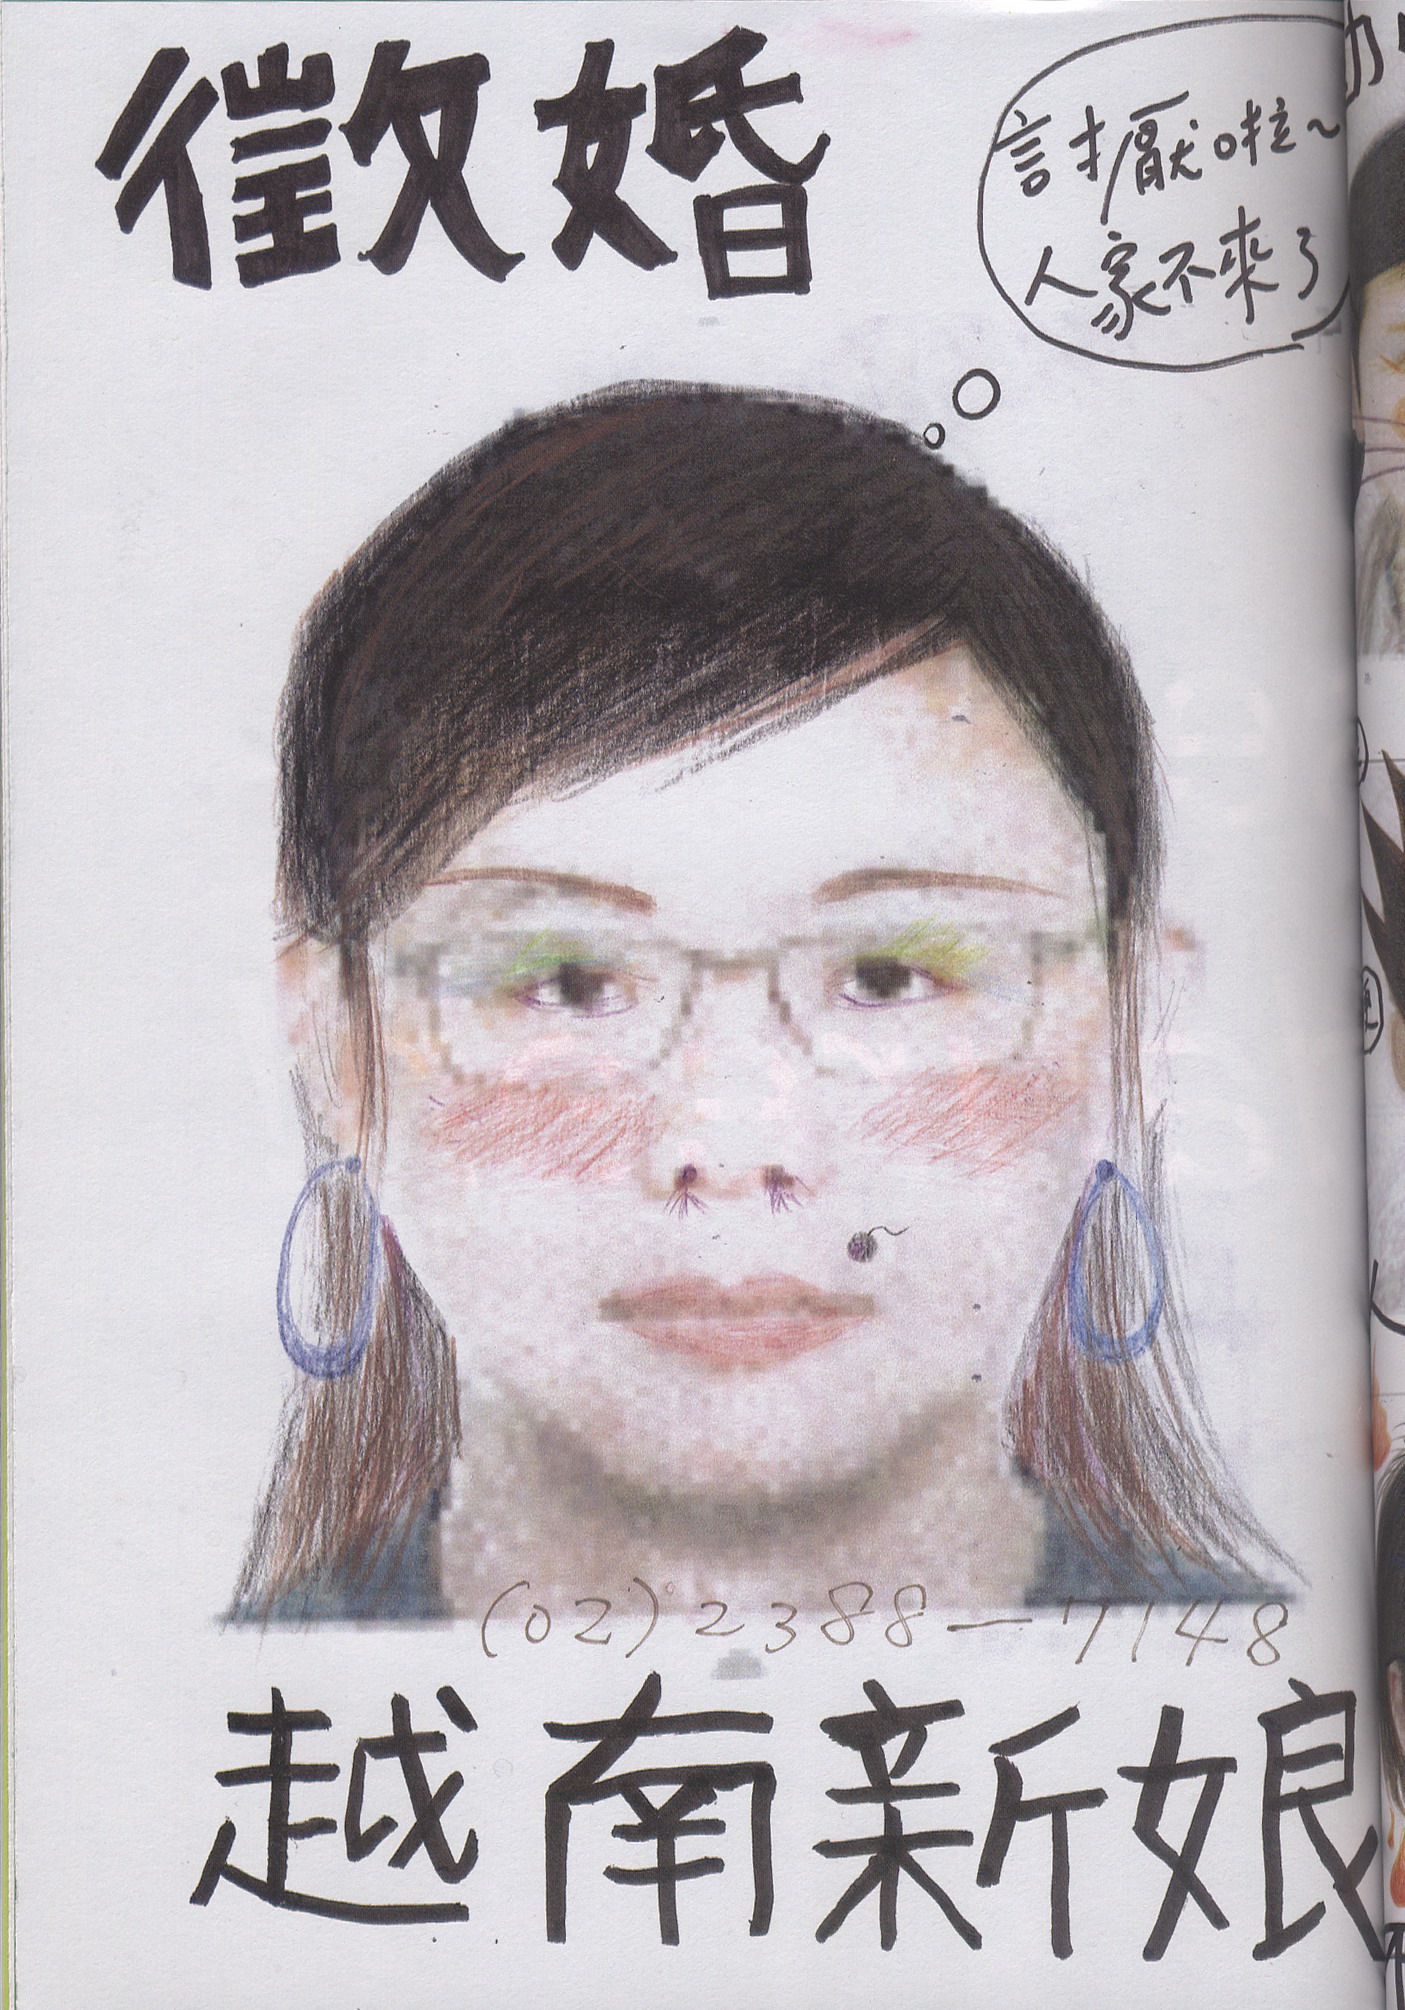 徵婚
討厭啦~
人家不來了
(02)2388-7148
越南新娘